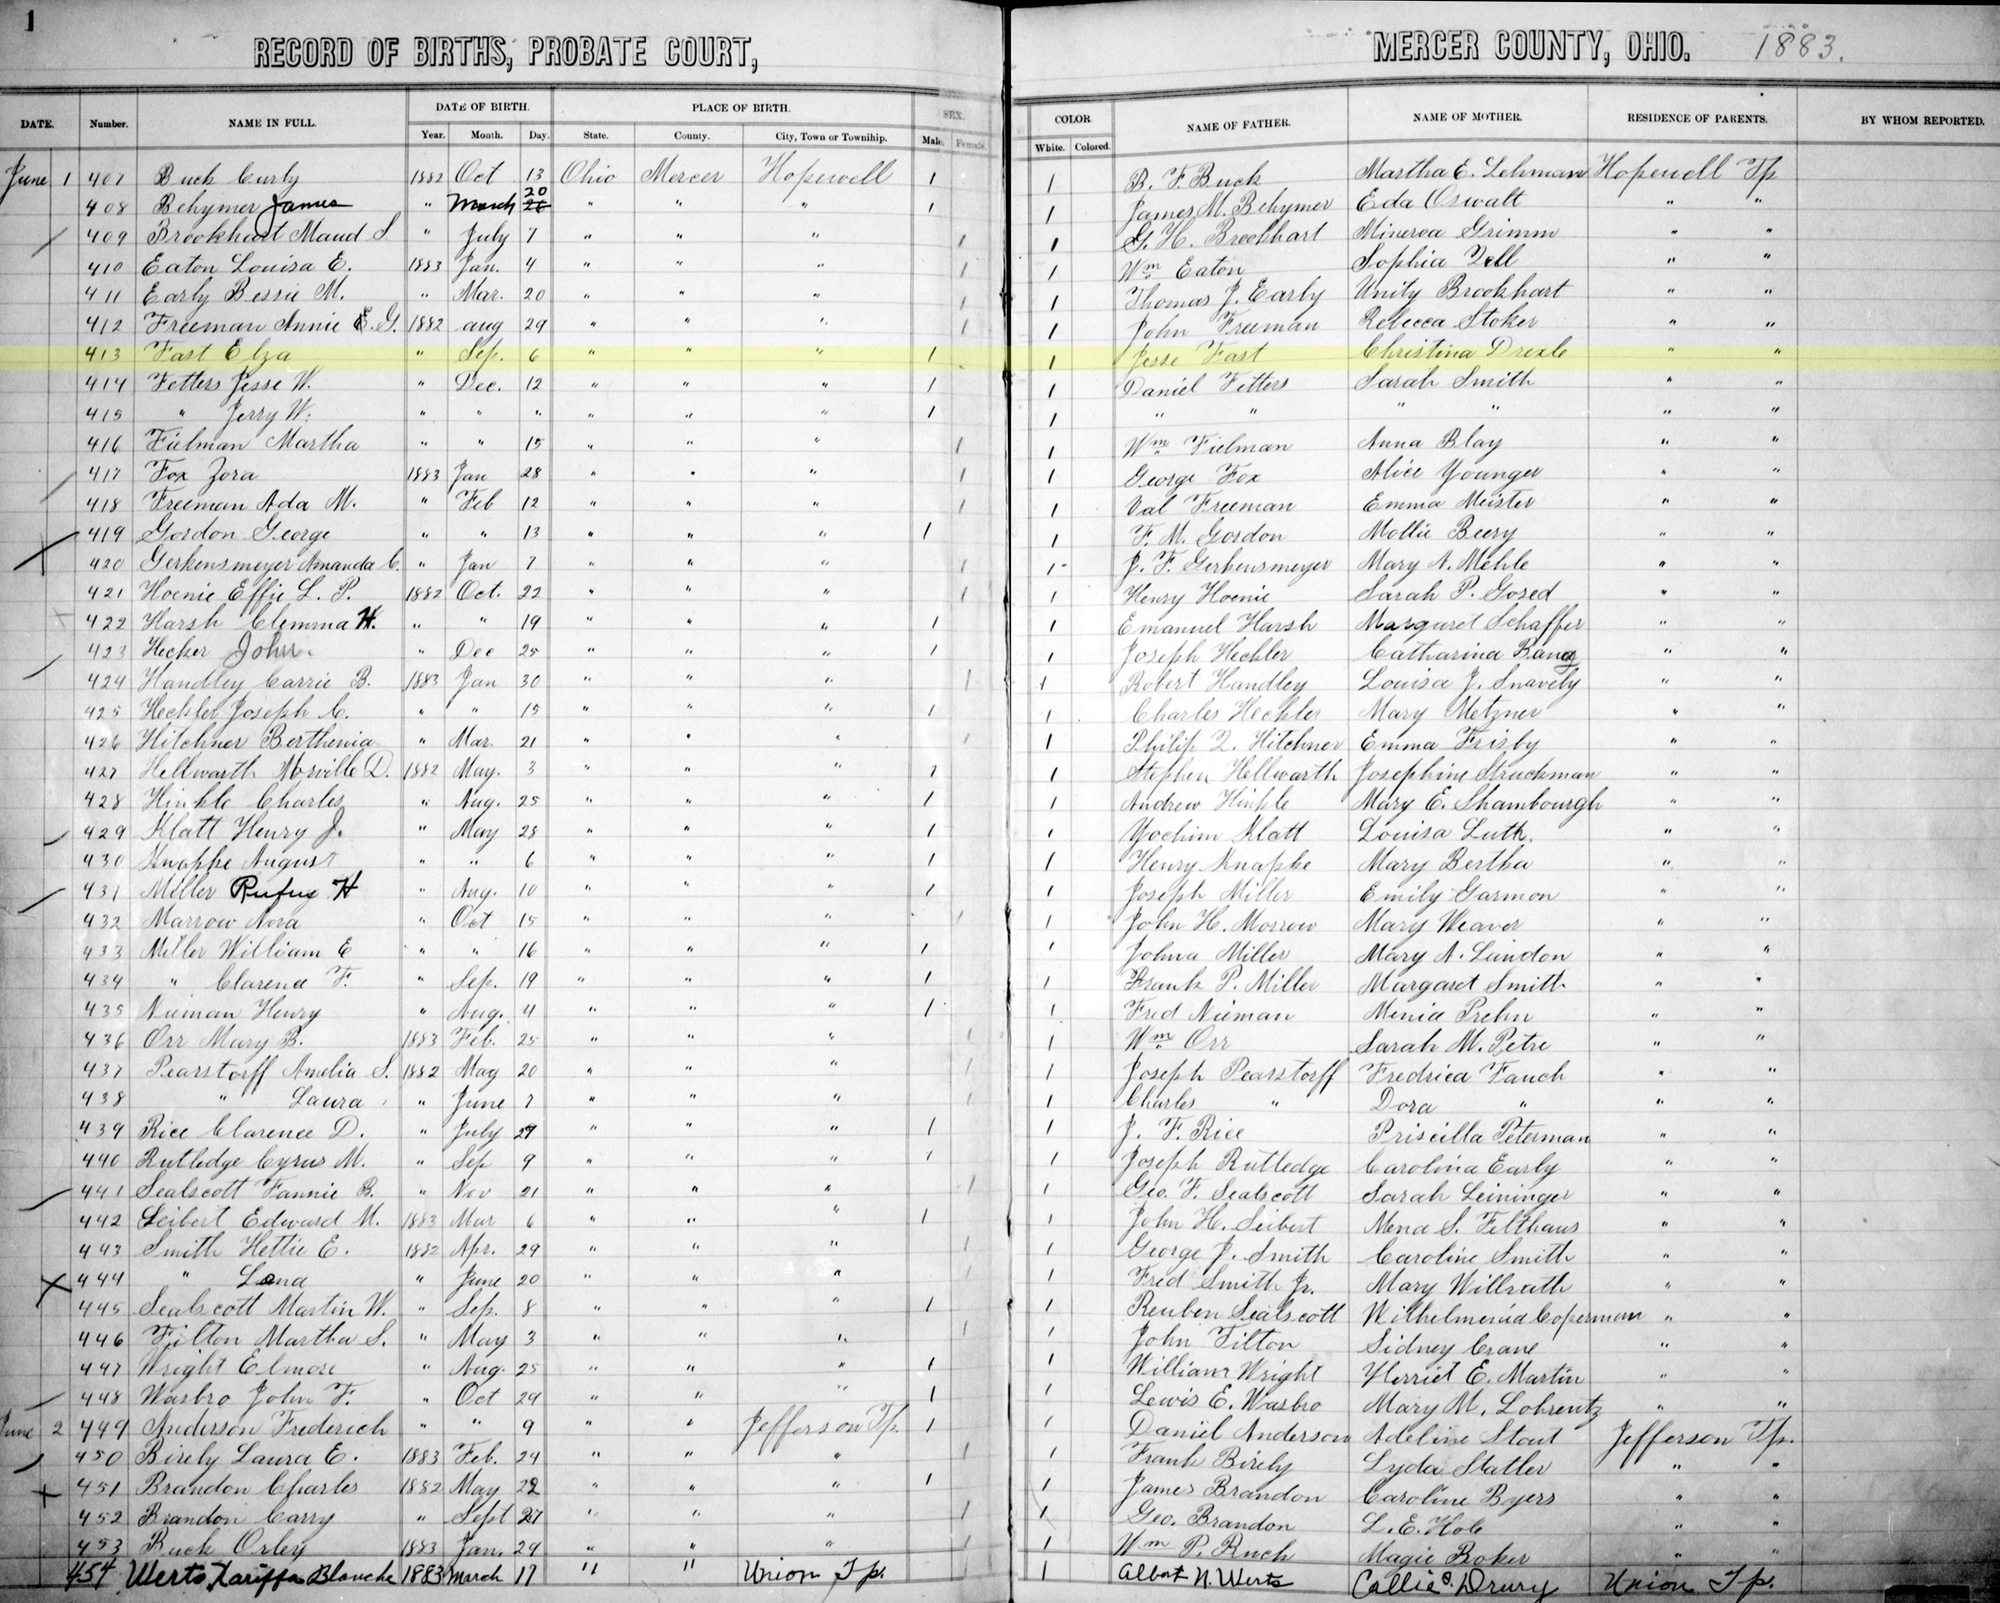 1
RECORD OF BIRTHS, PROBATE COURT, MERCER COUNTY, OHIO. 1883.
DATE. Number. NAME IN FULL. DATE OF BIRTH. PLACE OF BIRTH. SEX. COLOR NAME OF FATHER. NAME OF MOTHER. RESIDENCE OF PARENTS. BY WHOM REPORTED.
Year. Month. Day. State. County. City, Town or Township. Male. Female. White. Colored.
June 1 407 Buck Curly 1882 Oct 13 Ohio Mercer Hopewell 1 1 B. F. Buck Martha E. Lehman Hopewell Tp
408 Behymer James " March 20 26 " " " 1 1 James M. Behymer Eda Oswalt " "
409 Brookhart Maud S " July 7 " " " 1 1 G. H. Brookhart Minerva Grimm " "
410 Eaton Louisa E. 1883 Jan. 4 " " " 1 1 Wm Eaton Sophia " "
411 Early Bessie M. " Mar. 20 " " " 1 1 Thomas J. Early Unity Brookhart " "
412 Freeman Annie E. G. 1882 aug 29 " " " 1 1 John Freeman Rebecca Stoker " "
413 Fast Elza " Sep. 6 " " " 1 1 Jesse Fast Christina Drexle " "
414 Fetters Jesse W. " Dec. 12 " " " 1 1 Daniel Fetters Sarah Smith " "
415 " Jerry W. " " " " " " 1 1 " " " " " "
416 Fielman Martha " " 15 " " " 1 1 Wm Fielman Anna Blay " "
417 Fox Zora 1883 Jan 28 " " " 1 1 George Fox Alice Younger " "
418 Freeman Ada M. " Feb 12 " " " 1 1 Val Freeman Emma Meister " "
419 Gordon George " " 13 " " " 1 1 F. M. Gordon Mollie Beery " "
420 Gerkensmeyer Amanda C. " Jan 7 " " " 1 1 J. F. Gerkensmeyer Mary A. Mehle " "
421 Hoenie Effie L. P. 1882 Oct. 22 " " " 1 1 Henry Hoenie Sarah P. Gosed " "
422 Harsh Clemma H. " " 19 " " " 1 1 Emanuel Harsh Margaret Schaffer " "
423 Hecker John " Dec 25 " " " 1 1 Joseph Heckler Catharina " "
424 Handley Carrie B. 1883 Jan 30 " " " 1 1 Robert Handley Louisa J. Snavely " "
425 Heckler Joseph C. " " 15 " " " 1 1 Charles Heckler Mary Metzner " "
426 Hitchner Berthenia " Mar. 21 " " " 1 1 Philip Q. Hitchner Emma Frisby " "
427 Hellwarth Norville D. 1882 May. 3 " " " 1 1 Stephen Hellwarth Josephine Struckman " "
428 Hinkle Charles " Aug. 25 " " " 1 1 Andrew Hinkle Mary E. Shambourgh " "
429 Klatt Henry J. " May 28 " " " 1 1 Yochim Klatt Louisa Luth. " "
430 Knapke August " " 6 " " " 1 1 Henry Knapke Mary Bertha " "
431 Miller Rufus H " Aug. 10 " " " 1 1 Joseph Miller Emily Garmon " "
432 Marrow Nora " Oct 15 " " " 1 1 John H. Morrow Mary Weaver " "
433 Miller William E " " 16 " " " 1 1 Johna Miller Mary A. Lundon " "
434 " Clarence F. " Sep. 19 " " " 1 1 Frank P. Miller Margaret Smith " "
435 Nieman Henry " Aug. 4 " " " 1 1 Fred Nieman Menia Prehn " "
436 Orr Mary B. 1883 Feb. 25 " " " 1 1 Wm Orr Sarah M. Petre " "
437 Pearstorff Amelia S. 1882 May 20 " " " 1 1 Joseph Pearstorff Fredrica Fanch " "
438 " Laura " June 7 " " " 1 1 Charles " Dora " " "
439 Rice Clarence D. " July 29 " " " 1 1 J. F. Rice Priscilla Peterman " "
440 Rutledge Cyrus M. " Sep 9 " " " 1 1 Joseph Rutledge Carolina Early " "
441 Sealscott Fannie B. " Nov 21 " " " 1 1 Geo. F. Sealscott Sarah Leininger " "
442 Seibert Edward M. 1883 Mar 6 " " " 1 1 John H. Seibert Mena S. Felthaus " "
443 Smith Hettie E. 1882 Apr. 29 " " " 1 1 George J. Smith Caroline Smith " "
444 " Lena " June 20 " " " 1 1 Fred Smith Jr. Mary Willrath " "
445 Sealscott Martin W. " Sep. 8 " " " 1 1 Reuben Sealscott Wilhelmenia Coperman " "
446 Tilton Martha S. " May 3 " " " 1 1 John Tilton Sidney Crane " "
447 Wright Elmore " Aug. 25 " " " 1 1 William Wright Herriet E. Martin " "
448 Wasbro John F. " Oct 29 " " " 1 1 Lewis E. Wasbro Mary M. Lohrentz " "
June 2 449 Anderson Frederich " " 9 " " Jefferson Tp. 1 1 Daniel Anderson Adeline Stout Jefferson Tp.
450 Birely Laura E. 1883 Feb. 24 " " " 1 1 Frank Birely Lyda Statler " "
451 Brandon Charles 1882 May 22 " " " 1 1 James Brandon Caroline Byers " "
452 Brandon Carry " Sept 27 " " " 1 1 Geo. Brandon L. E. Hole " "
453 Buck Orley 1883 Jan. 29 " " " 1 1 Wm P. Magie Roker " "
454 Werts Tariffa Blanche 1883 March 17 " " Union Tp. 1 Albert N. Werts Callie O. Drury Union Tp.